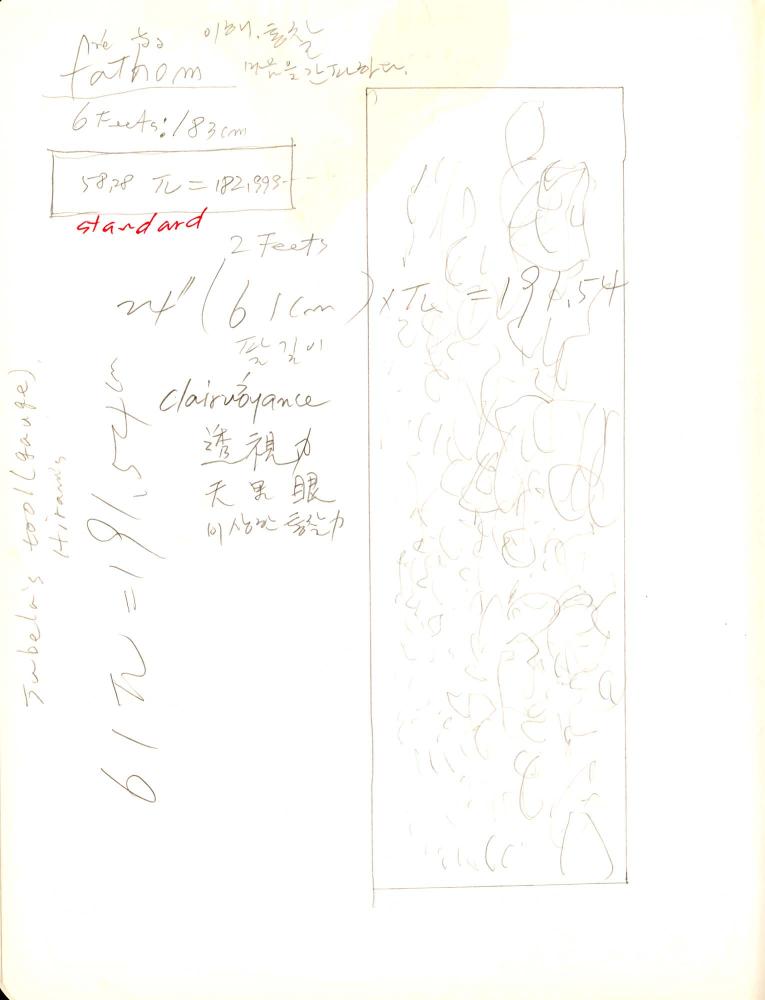 이해, 통찰
fathom 마음을 간파하다.
6 Feets: 183cm
58,28 π = 182,999---
standard
2 Feets
24" (61cm) × π = 191.54
팔길이
clairvoyance
透視力
天里眼
이상한 통찰力
61 π = 191,54 cm
Jubela's tool (gauge).
Hiram's